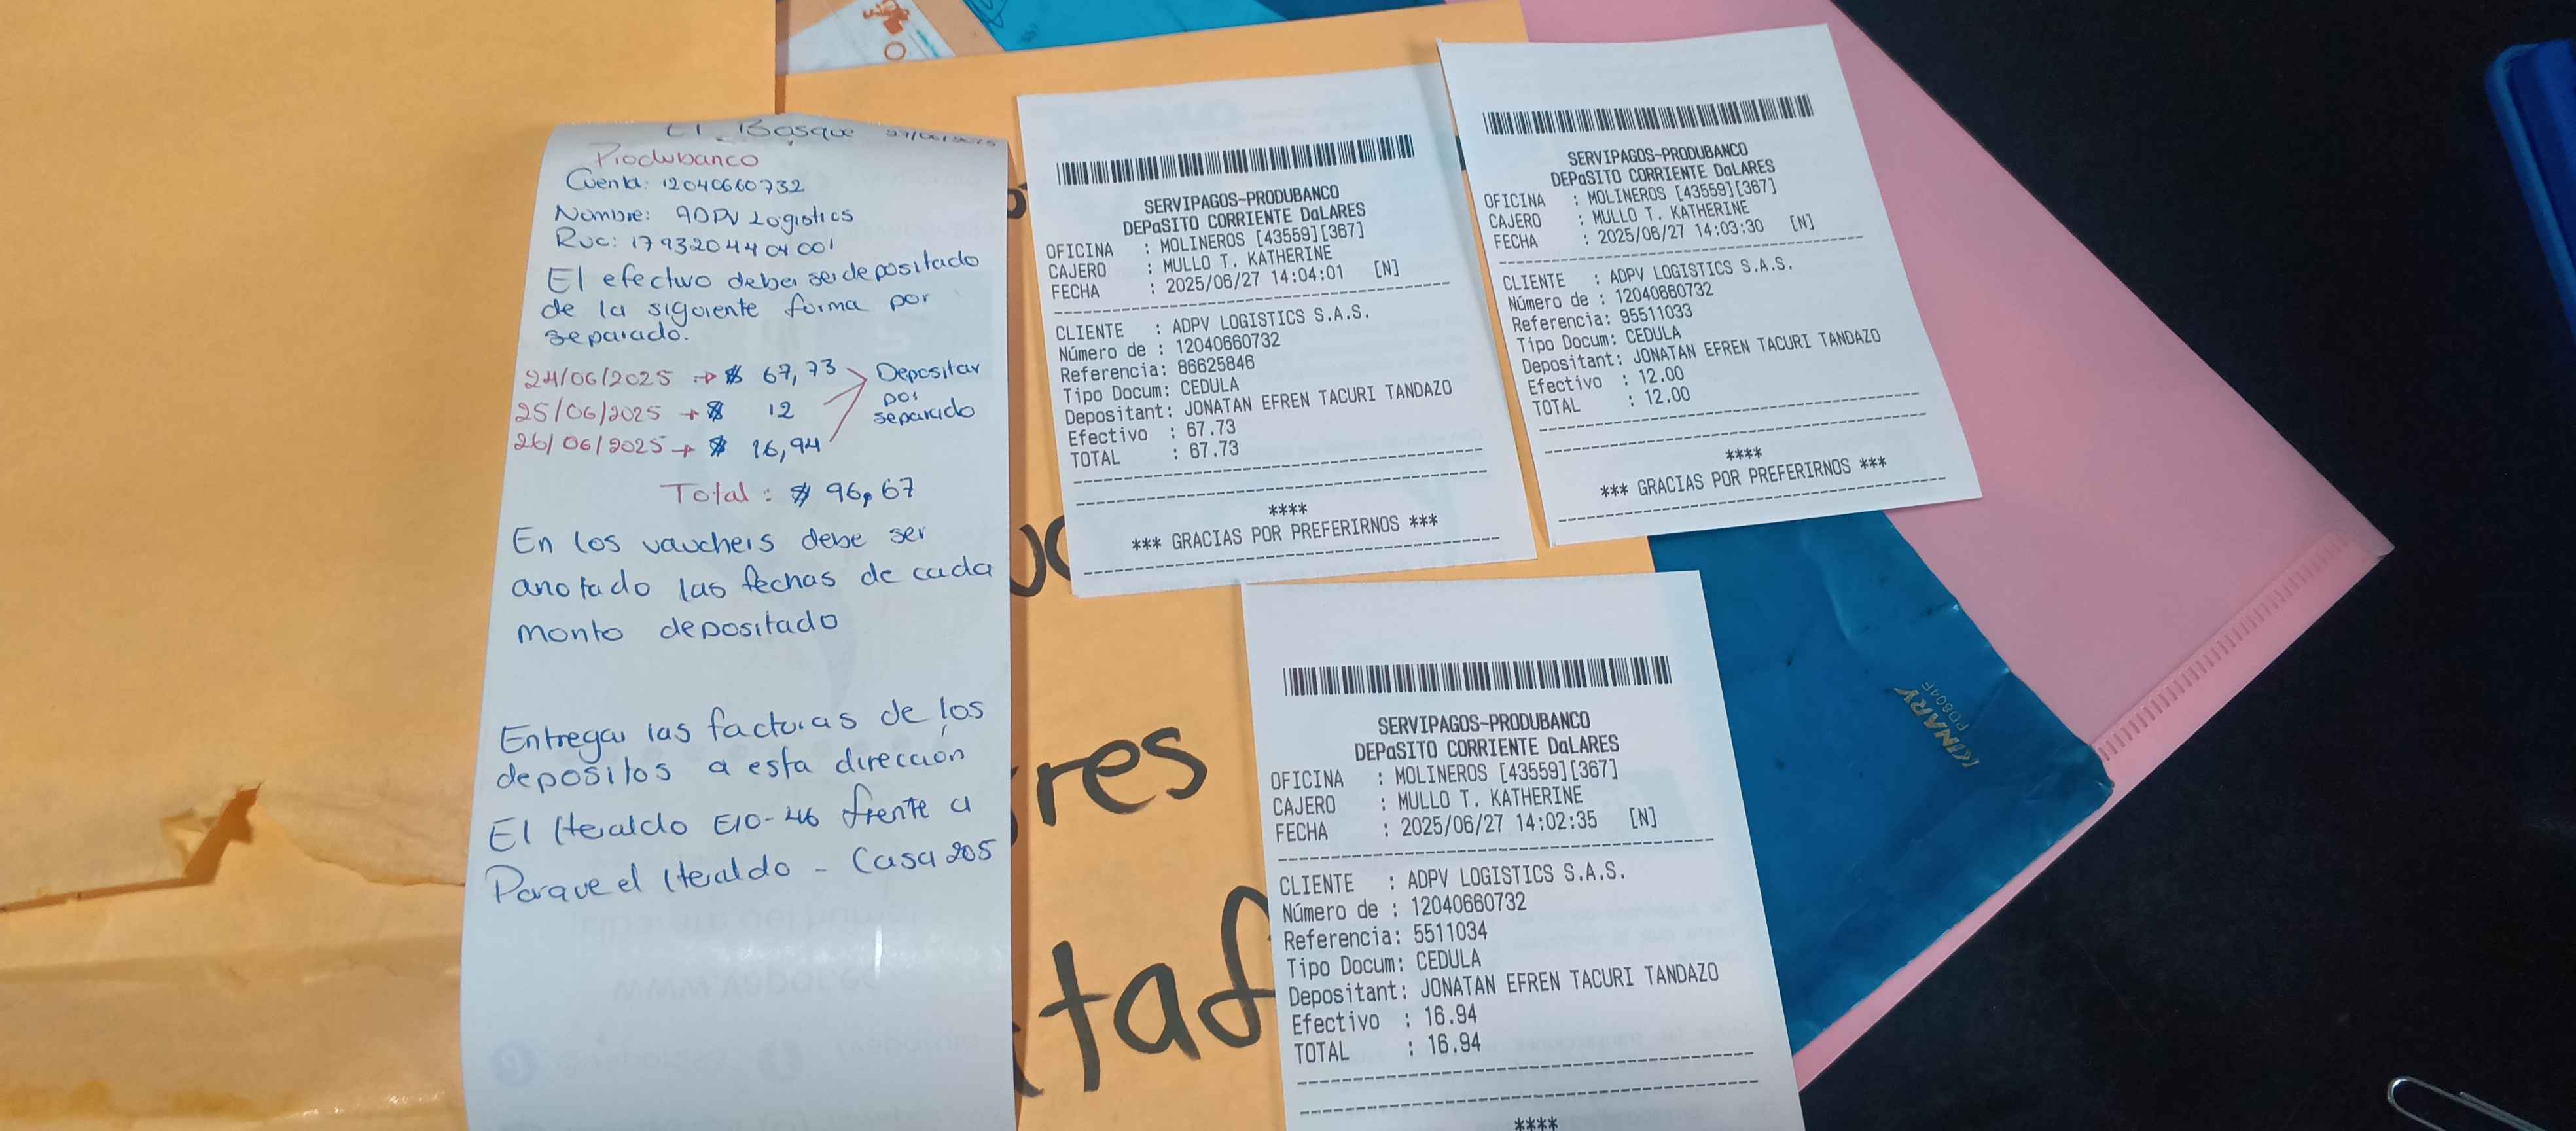 El Bosque 27/06/2025
Produbanco
Cuenta: 12040660732
Nombre: ADPV Logistics
Ruc: 1793204404001
El efectivo debe ser depositado
de la siguiente forma por
separado.
24/06/2025 → $ 67,73
25/06/2025 → $ 12
26/06/2025 → $ 16,94
Depositar
por
separado
Total: $ 96,67
En los vauchers debe ser
anotado las fechas de cada
monto depositado
Entregar las facturas de los
depositos a esta dirección
El Heraldo E10-46 frente a
Parque el Heraldo - Casa 205
SERVIPAGOS-PRODUBANCO
DEPaSITO CORRIENTE DaLARES
OFICINA : MOLINEROS [43559][367]
CAJERO : MULLO T. KATHERINE
FECHA : 2025/06/27 14:04:01 [N]
CLIENTE : ADPV LOGISTICS S.A.S.
Número de : 12040660732
Referencia: 86625846
Tipo Docum: CEDULA
Depositant: JONATAN EFREN TACURI TANDAZO
Efectivo : 67.73
TOTAL : 67.73
****
*** GRACIAS POR PREFERIRNOS ***
SERVIPAGOS-PRODUBANCO
DEPaSITO CORRIENTE DaLARES
OFICINA : MOLINEROS [43559][367]
CAJERO : MULLO T. KATHERINE
FECHA : 2025/06/27 14:03:30 [N]
CLIENTE : ADPV LOGISTICS S.A.S.
Número de : 12040660732
Referencia: 95511033
Tipo Docum: CEDULA
Depositant: JONATAN EFREN TACURI TANDAZO
Efectivo : 12.00
TOTAL : 12.00
****
*** GRACIAS POR PREFERIRNOS ***
SERVIPAGOS-PRODUBANCO
DEPaSITO CORRIENTE DaLARES
OFICINA : MOLINEROS [43559][367]
CAJERO : MULLO T. KATHERINE
FECHA : 2025/06/27 14:02:35 [N]
CLIENTE : ADPV LOGISTICS S.A.S.
Número de : 12040660732
Referencia: 5511034
Tipo Docum: CEDULA
Depositant: JONATAN EFREN TACURI TANDAZO
Efectivo : 16.94
TOTAL : 16.94
****
res
taf
KINARY
PD604F